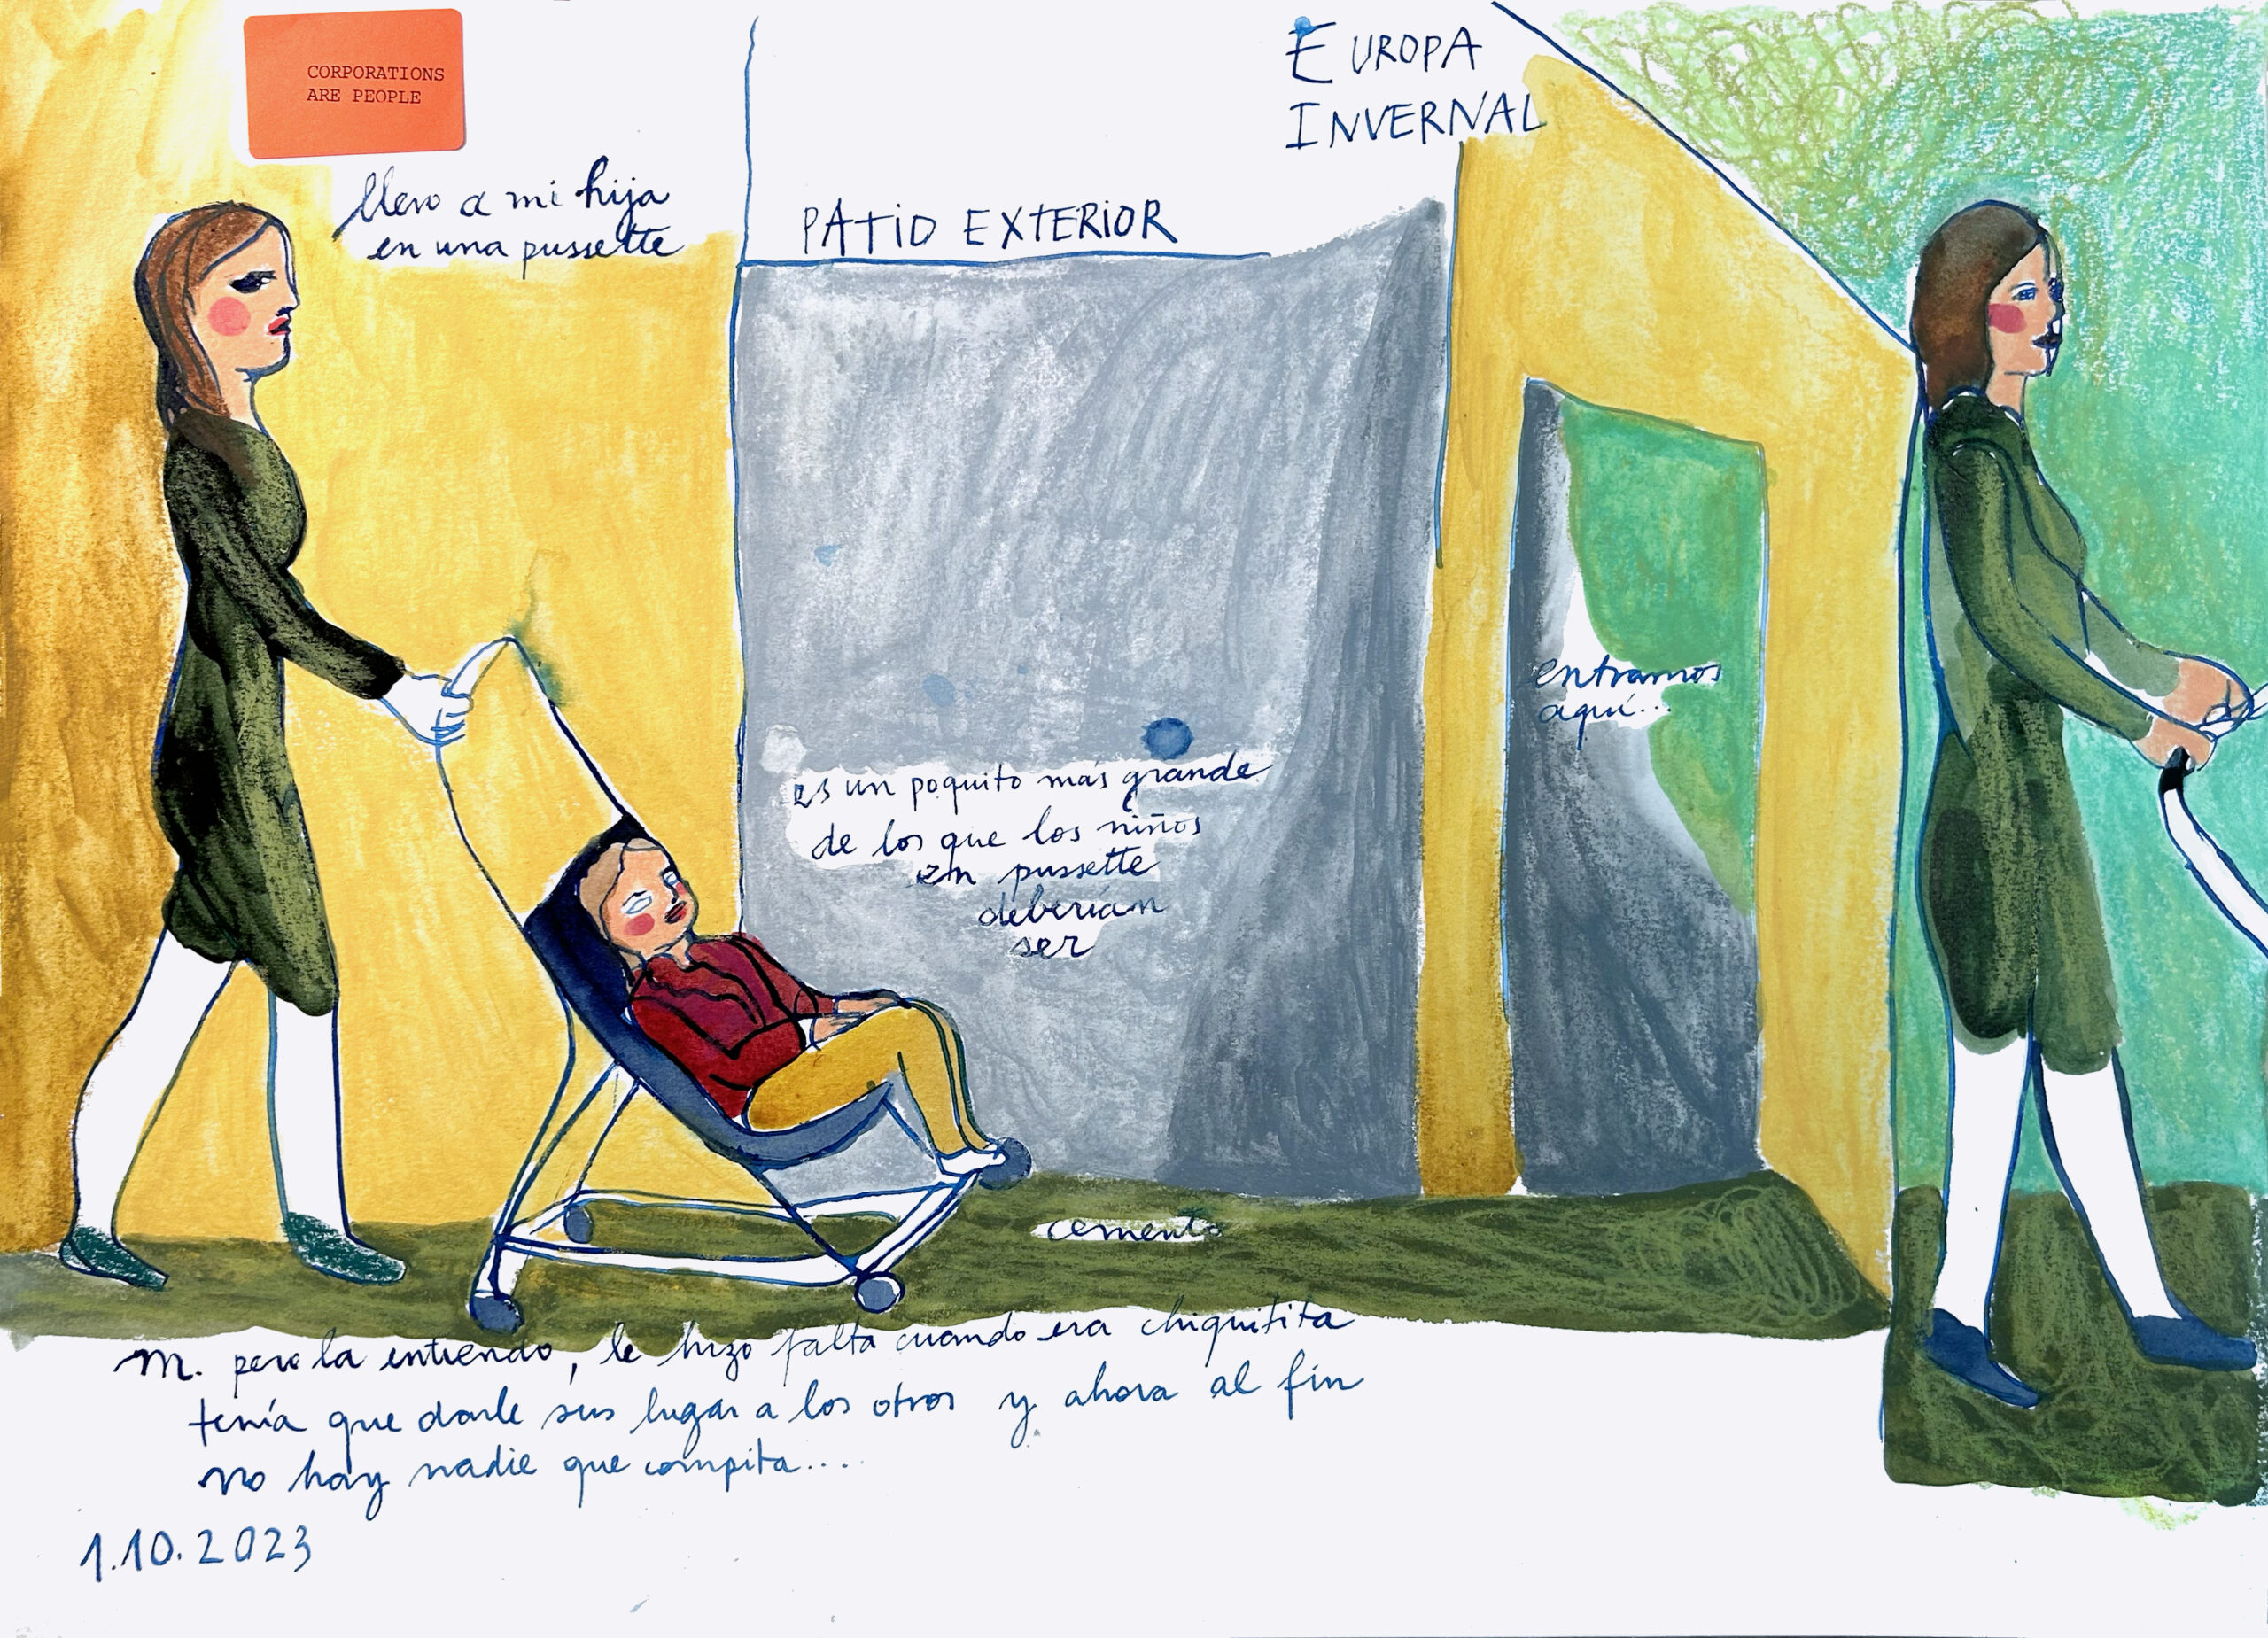 CORPORATIONS
ARE PEOPLE
llevo a mi hija
en una pussette
PATIO EXTERIOR
EUROPA
INVERNAL
entramos
aquí...
es un poquito más grande
de los que los niños
en pussette
deberían
ser
cemento
M. pero la entiendo, le hizo falta cuando era chiquitita
tenía que darle sus lugar a los otros y ahora al fin
no hay nadie que compita....
1.10.2023